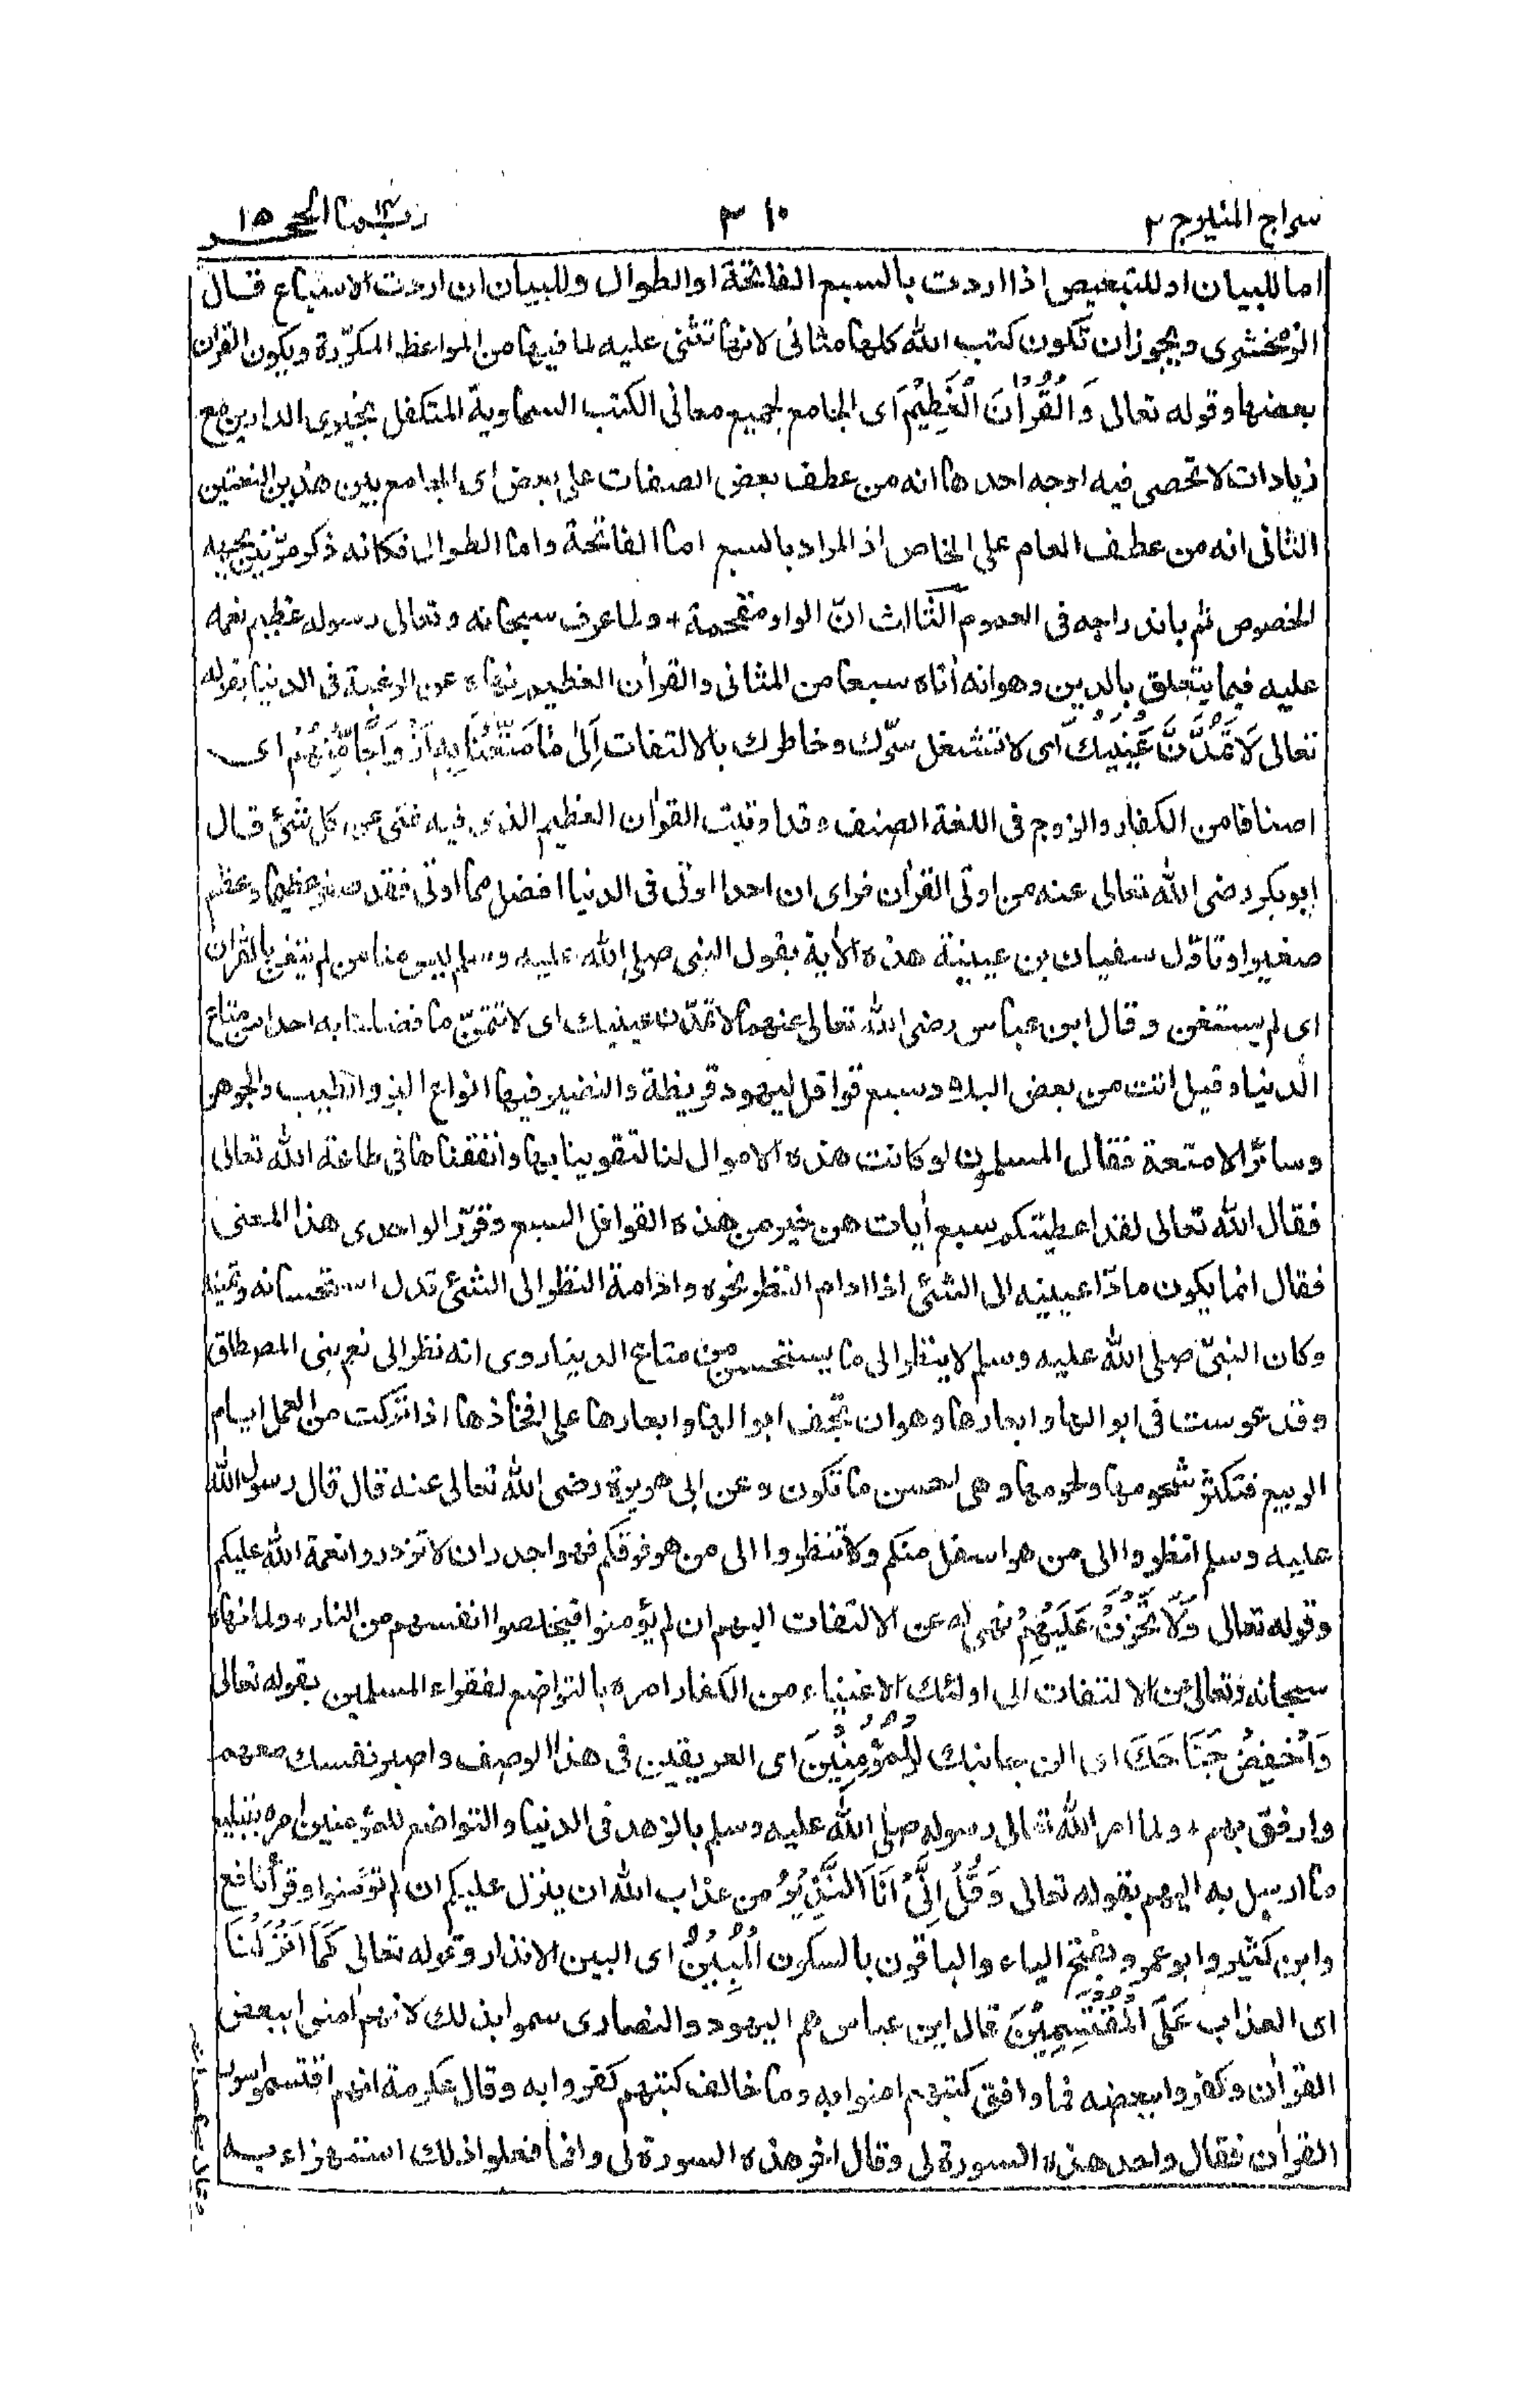 سراج المنير ج ٢
٣١٠
ربما ١٤ الحجر ١٥
اما للبيان او للتبعيض اذا اردت بالسبع الفاتحة او الطوال وللبيان ان اردت الاسباع قال
الزمخشرى ويجوز ان تكون كتب الله كلها مثانى لانها تثنى عليه لما فيها من المواعظ المكرّرة ويكون القرآن
بعضها وقوله تعالى وَالْقُرْاٰنَ الْعَظِيْمَ اى الجامع لجميع معانى الكتب السماوية المتكفل بخيرى الدارين مع
زيادات لا تحصى فيه اوجه احدها انه من عطف بعض الصفات على بعض اى الجامع بين هذين النعتين
الثانى انه من عطف العام على الخاص اذ المراد بالسبع اما الفاتحة واما الطوال فكانه ذكر مرّتين بجهة
الخصوص ثم باندراجه فى العموم الثالث انّ الواو مقحمة + ولما عرف سبحانه وتعالى رسوله عظيم نعمه
عليه فيما يتعلق بالدين وهو انه اٰتاه سبعا من المثانى والقراٰن العظيم نهاه عن الرغبة فى الدنيا بقوله
تعالى لَا تَمُدَّنَّ عَيْنَيْكَ اى لا تشغل سرّك وخاطرك بالالتفات اِلٰى مَا مَتَّعْنَا بِهٖ اَزْوَاجًا مِّنْهُمْ اى
اصنافا من الكفار والزوج فى اللغة الصنف وقد اوتيت القراٰن العظيم الذى فيه غنى عن كل شئ قال
ابو بكر رضى الله تعالى عنه من اوتى القراٰن فراى ان احدا اوتى فى الدنيا افضل مما اوتى فقد صغر عظيما وعظم
صغيرا وتاوّل سفيان بن عيينة هذه الاٰية بقول النبى صلى الله عليه وسلم ليس منا من لم يتغن بالقراٰن
اى لم يستغن وقال ابن عباس رضى الله تعالى عنهما لا تمدّن عينيك اى لا تتمنّ ما فضلنا به احدا من متاع
الدنيا وقيل اتت من بعض البلاد سبع قوافل ليهود قريظة والنضير فيها انواع البز والطيب والجوهر
وسائر الامتعة فقال المسلمون لو كانت هذه الاموال لنا لتقوينا بها وانفقناها فى طاعة الله تعالى
فقال الله تعالى لقد اعطيتكم سبع اٰيات هن خير من هذه القوافل السبع وقرّر الواحدى هذا المعنى
فقال انما يكون مادّا عينيه الى الشئ اذا ادام النظر نحوه وادامة النظر الى الشئ تدل استحسانه وتمنيه
وكان النبىّ صلى الله عليه وسلم لا ينظر الى ما يستحسن من متاع الدنيا روى انه نظر الى نعم بنى المصطلق
وقد عوست فى ابوالها وابعارها وهو ان تجف ابوالها وابعارها على افخاذها اذا تركت من العمل ايام
الربيع فتكثر شحومها ولحومها وهى احسن ما تكون وعن ابى هريرة رضى الله تعالى عنه قال قال رسول الله
عليه وسلم انظروا الى من هو اسفل منكم ولا تنظروا الى من هو فوقكم فهو اجدر ان لا تزدروا نعمة الله عليكم
وقوله تعالى وَلَا تَحْزَنْ عَلَيْهِمْ نهى له عن الالتفات اليهم ان لم يؤمنوا فيخلصوا انفسهم من النار + ولما نهاه
سبحانه وتعالى عن الالتفات الى اولئك الاغنياء من الكفار امره بالتواضع لفقراء المسلمين بقوله تعالى
وَاخْفِضْ جَنَاحَكَ اى الن جانبك لِلْمُؤْمِنِيْنَ اى العريقين فى هذا الوصف واصبر نفسك معهم
وارفق بهم + ولما امر الله تعالى رسوله صلى الله عليه وسلم بالزهد فى الدنيا والتواضع للمؤمنين امره بتبليغ
ما ارسل به اليهم بقوله تعالى وَقُلْ اِنِّىْٓ اَنَا النَّذِيْرُ من عذاب الله ان ينزل عليكم ان لم تؤمنوا وقرأ نافع
وابن كثير وابو عمرو بفتح الياء والباقون بالسكون الْمُبِيْنُ اى البين الانذار وقوله تعالى كَمَآ اَنْزَلْنَا
اى العذاب عَلَى الْمُقْتَسِمِيْنَ قال ابن عباس هم اليهود والنصارى سموا بذلك لانهم اٰمنوا ببعض
القراٰن وكفروا ببعضه فما وافق كتبهم اٰمنوا به وما خالف كتبهم كفروا به وقال عكرمة انهم اقتسموا سور
القراٰن فقال واحد هذه السورة لى وقال اٰخر هذه السورة لى وانما فعلوا ذلك استهزاء به